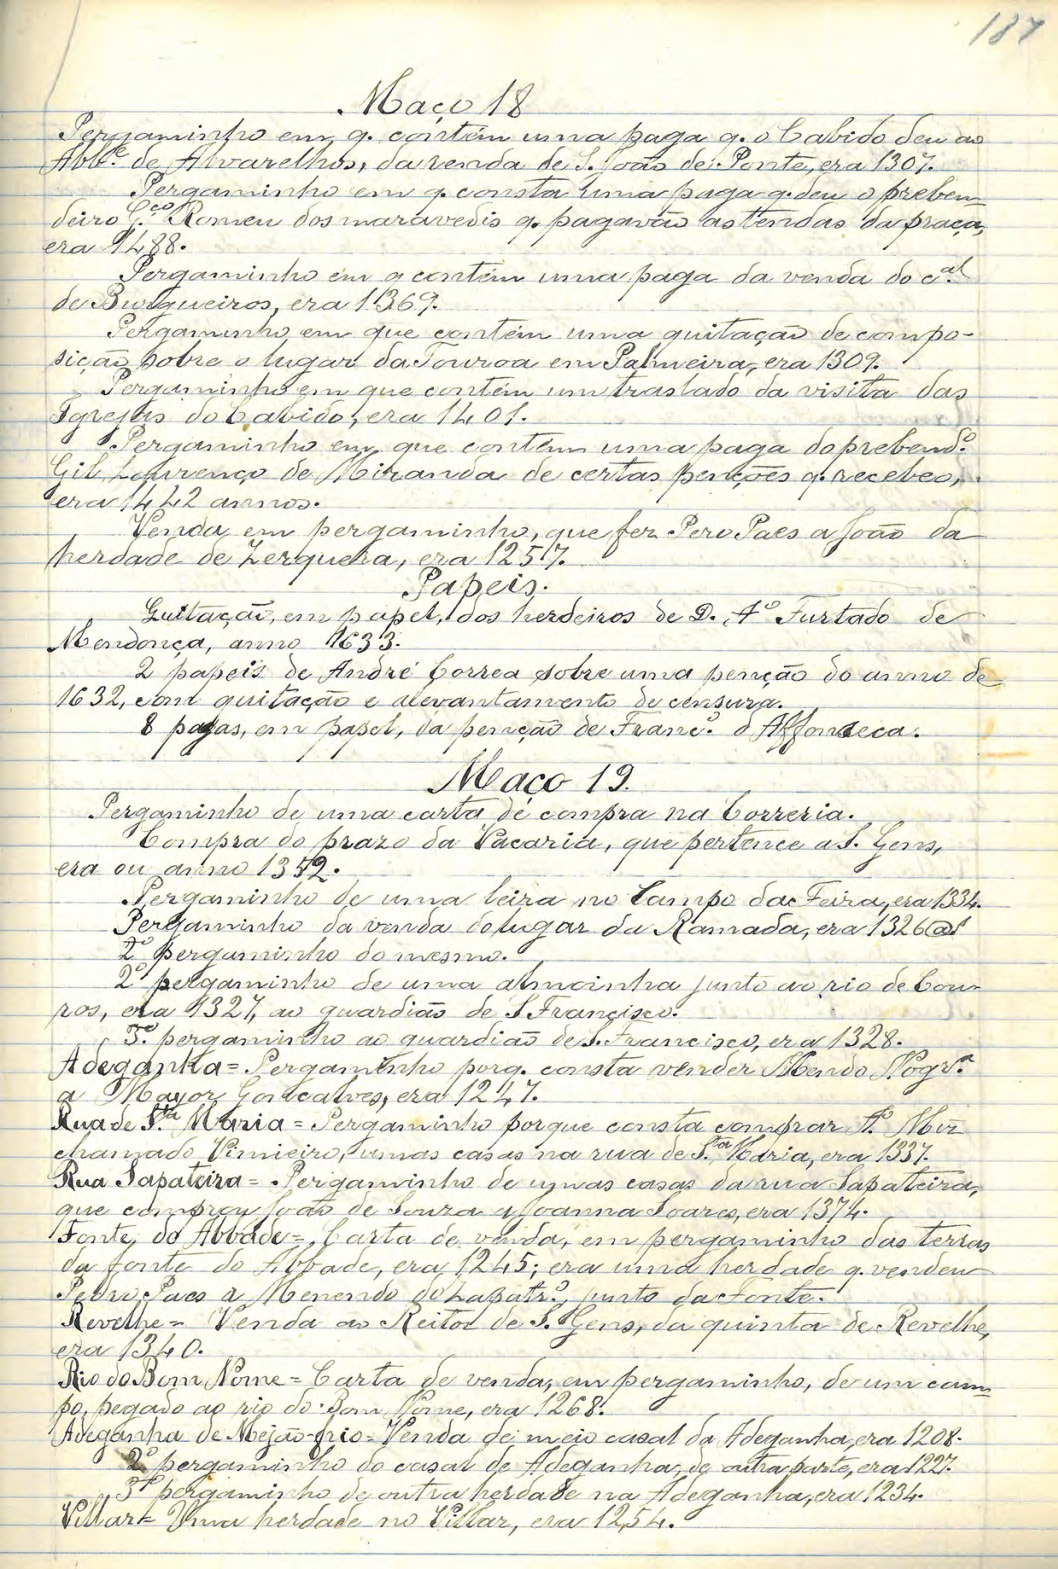 187
Maço 18
Pergaminho em q. contém uma paga q. o Cabido deu ao
Abb.e de Alvarelhos, da renda de S. João de Ponte, era 1307.
Pergaminho em q. consta uma paga q. deu o preben-
deiro G.co Romeu dos maravedis q. pagavão as tendas da praça,
era 1488.
Pergaminho em q contém uma paga da venda do c.al
de Burgueiros, era 1369.
Pergaminho em que contém uma quitação de compo-
sição sobre o lugar da Touroa em Palmeira, era 1309.
Pergaminho em que contém um traslado da visita das
Igrejas do Cabido, era 1401.
Pergaminho em que contém uma paga do prebend.o
Gil Lourenço de Miranda de certas penções q. recebeo,
era 1442 annos.
Venda em pergaminho, que fez Pero Paes a João da
herdade de Zerqueira, era 1257.
Papeis.
Quitação, em papel, dos herdeiros de D. A.o Furtado de
Mendonça, anno 1633.
2 papeis de André Correa sobre uma penção do anno de
1632, com quitação e alevantamento de censura.
8 pagas, em papel, da penção de Franc.o d'Affonseca.
Maço 19.
Pergaminho de uma carta de compra na Correria.
Compra do prazo da Vacaria, que pertence a S. Gens,
era ou anno 1352.
Pergaminho de uma leira no Campo da Feira, era 1334.
Pergaminho da venda do lugar da Ramada, era 1326
2.o pergaminho do mesmo.
2.o pergaminho de uma almoinha junto ao rio de Cou-
ros, era 1327, ao guardião de S. Francisco.
3.o pergaminho ao guardião de S. Francisco, era 1328.
Adeganha = Pergaminho porq. consta vender Mendo
a Mayor Goncalves, era 1247.
Rua de S.ta Maria = Pergaminho porque consta comprar
chamado Vimieiro, umas casas na rua de S.ta Maria, era 1337.
Rua Sapateira = Pergaminho de umas casas da rua Sapateira,
que comprou João de Souza a Joanna Soares, era 1374.
Fonte do Abbade = Carta de venda, em pergaminho das terras
da fonte do Abbade, era 1245; era uma herdade q. vendeu
Pedro Paes a Menendo do Zapatr.o, junto da Fonte.
Revelhe = Venda ao Reitor de S. Gens, da quinta de Revelhe,
era 1340.
Rio do Bom Nome = Carta de venda, em pergaminho, de um cam-
po, pegado ao rio do Bom Nome, era 1268.
Adeganha de Mejão-frio = Venda de meio casal da Adeganha, era 1208.
2.o pergaminho do casal de Adeganha, de outra parte, era 1227.
3.o pergaminho de outra herdade na Adeganha, era 1234.
Villar = Uma herdade no Villar, era 1254.